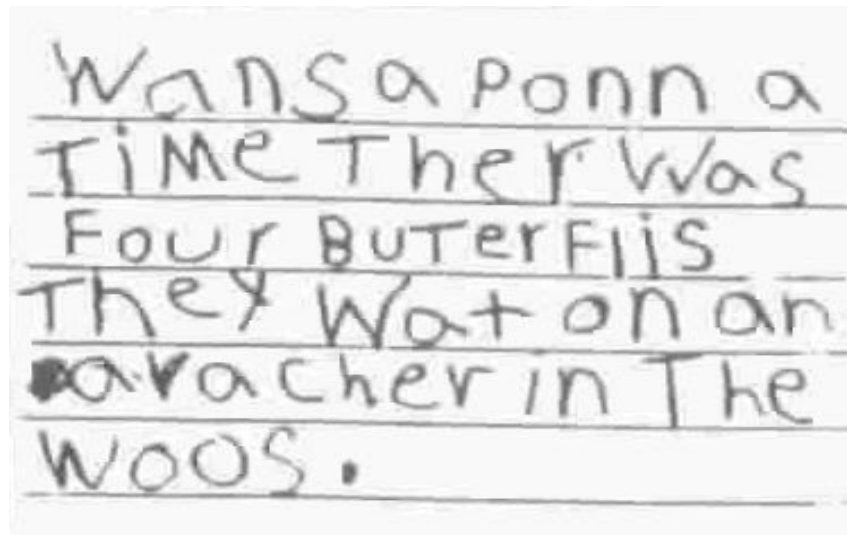 Wansaponn a
TiMe Ther Was
Four BuTerFliis
They Wat on an
avacher in The
WOOS.